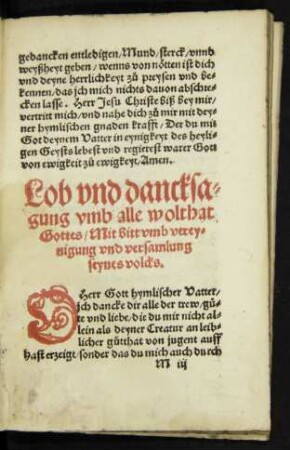 gedancken entledigen/Mund/sterck/vnnd
weyßheyt geben/wenns von nötten ist dich
vnd deyne herrlichkeyt zů preysen vnd be-
kennen/das ich mich nichts dauon abschre-
cken lasse. Herr Jesu Christe biß bey mir/
vertritt mich/vnd nahe dich zů mir mit dey-
ner hymlischen gnaden krafft/Der du mit
Got deynem Vatter in eynigkeyt des heyli-
gen Geysts lebest vnd regierest warer Gott
von ewigkeit zů ewigkeyt/Amen.
Lob vnd dancksa-
gung vmb alle wolthat
Gottes/Mit bitt vmb verey-
nigung vnd versamlung
seynes volcks.
O Herr Gott hymlischer Vatter/
ich dancke dir alle der trew/gü-
te vnd liebe/die du mir nicht al-
lein als deyner Creatur an leib-
licher gütthat von jugent auff
hast erzeigt/sonder das du mich auch durch
M iij